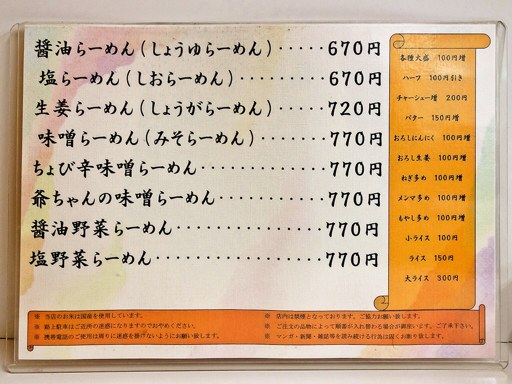 醤油らーめん(しょうゆらーめん)·····670円
塩らーめん(しおらーめん)········670円
生姜らーめん(しょうがらーめん)·····720円
味噌らーめん(みそらーめん)·······770円
ちょび辛味噌らーめん···········770円
爺ちゃんの味噌らーめん··········770円
醤油野菜らーめん·············770円
塩野菜らーめん··············770円
各種大盛 100円増
ハーフ 100円引き
チャーシュー増 200円
バター 150円増
おろしにんにく 100円増
おろし生姜 100円増
ねぎ多め 100円増
メンマ多め 100円増
もやし多め 100円増
小ライス 100円
ライス 150円
大ライス 300円
※ 当店のお米は国産を使用しています。
※ 路上駐車はご近所の迷惑になりますのでおやめください。
※ 携帯電話のご使用は周りに迷惑を掛けないようにお願い致します。
※ 店内は禁煙となっております。ご協力お願い致します。
※ ご注文の品物によって順番が入れ替わる場合が御座います。ご了承下さい。
※ マンガ・新聞・雑誌等を読み続ける行為は固くお断り致します。